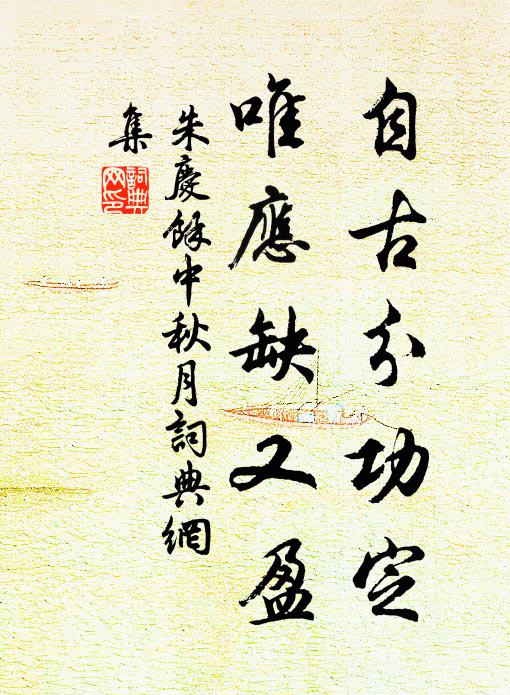 自古分功定
唯應缺又盈
朱慶餘中秋月詞典網
集
詞典網印